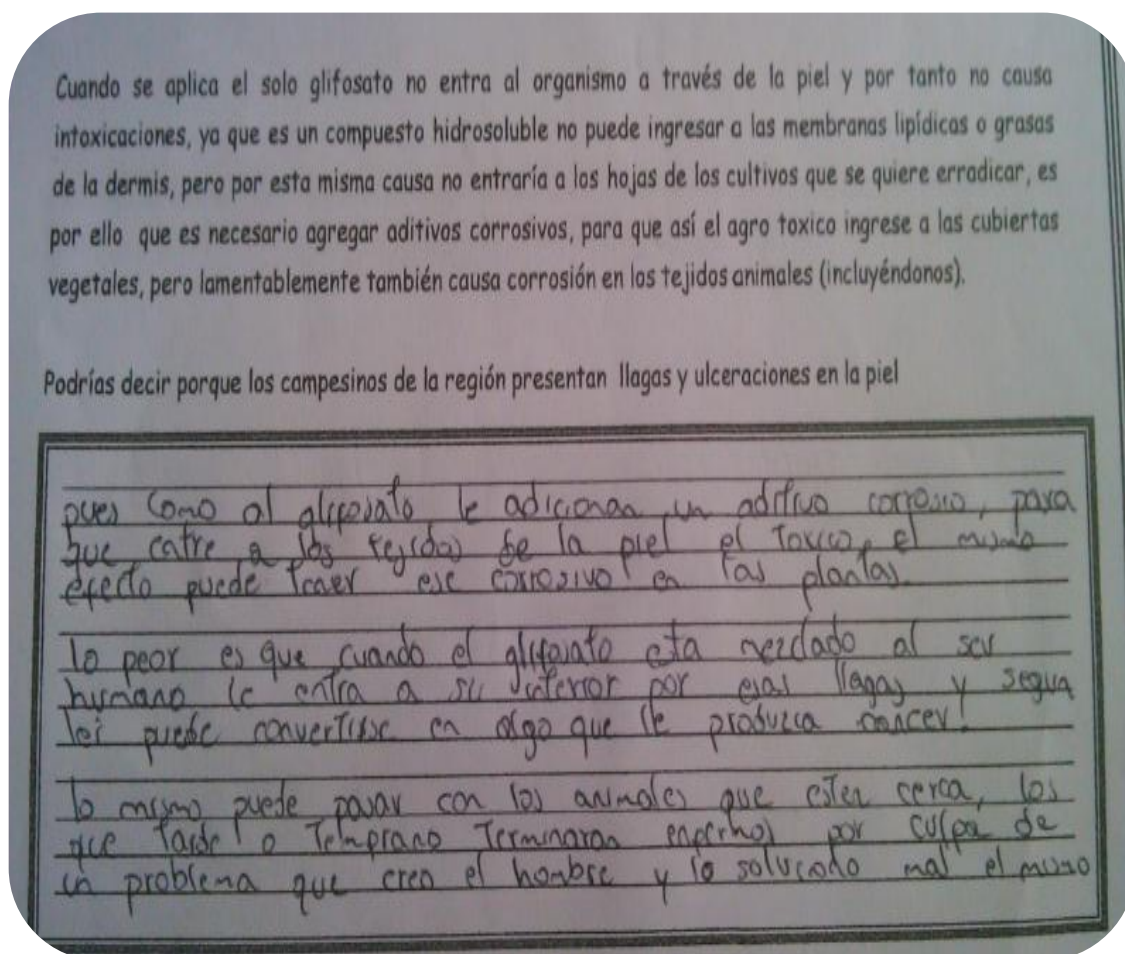 Cuando se aplica el solo glifosato no entra al organismo a través de la piel y por tanto no causa
intoxicaciones, ya que es un compuesto hidrosoluble no puede ingresar a las membranas lipídicas o grasas
de la dermis, pero por esta misma causa no entraría a las hojas de los cultivos que se quiere erradicar, es
por ello que es necesario agregar aditivos corrosivos, para que así el agro toxico ingrese a las cubiertas
vegetales, pero lamentablemente también causa corrosión en los tejidos animales (incluyéndonos).
Podrías decir porque los campesinos de la región presentan llagas y ulceraciones en la piel
pues como al glifosato le adicionan un aditivo corrosivo, para
que entre a los tejidos de la piel el toxico, el mismo
efecto puede traer ese corrosivo en las plantas
lo peor es que cuando el glifosato esta mezclado al ser
humano le entra a su interior por esas llagas y segun
lei puede convertirse en algo que le produzca cancer!
lo mismo puede pasar con los animales que esten cerca, los
que tarde o temprano terminaran enfermos por culpa de
un problema que creo el hombre y lo soluciono mal el mismo